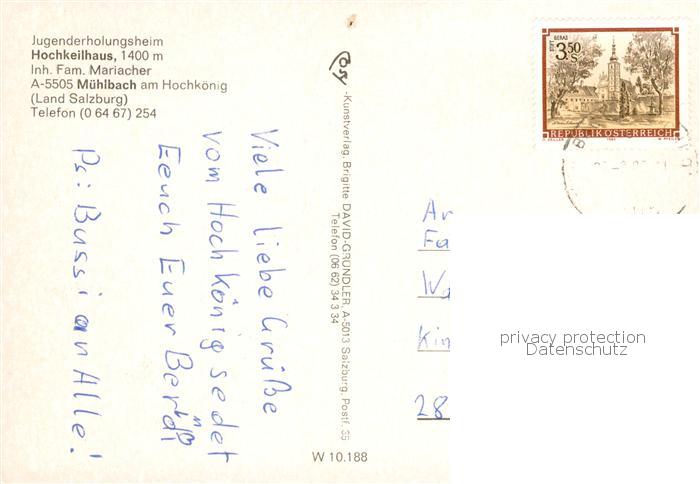 Jugenderholungsheim
Hochkeilhaus, 1400 m
Inh. Fam. Mariacher
A-5505 Mühlbach am Hochkönig
(Land Salzburg)
Telefon (0 64 67) 254
Viele liebe Grüße
vom Hochkönig sedet
Eeuch Euer Berdi
Ps: Bussi an Alle!
-Kunstverlag, Brigitte DAVID-GRÜNDLER, A-5013 Salzburg, Postf. 35
Telefon (06 62) 34 3 34
W 10.188
STIFT GERAS
3.50 S
REPUBLIK ÖSTERREICH
An
Fa
Wa
Kin
28
privacy protection
Datenschutz